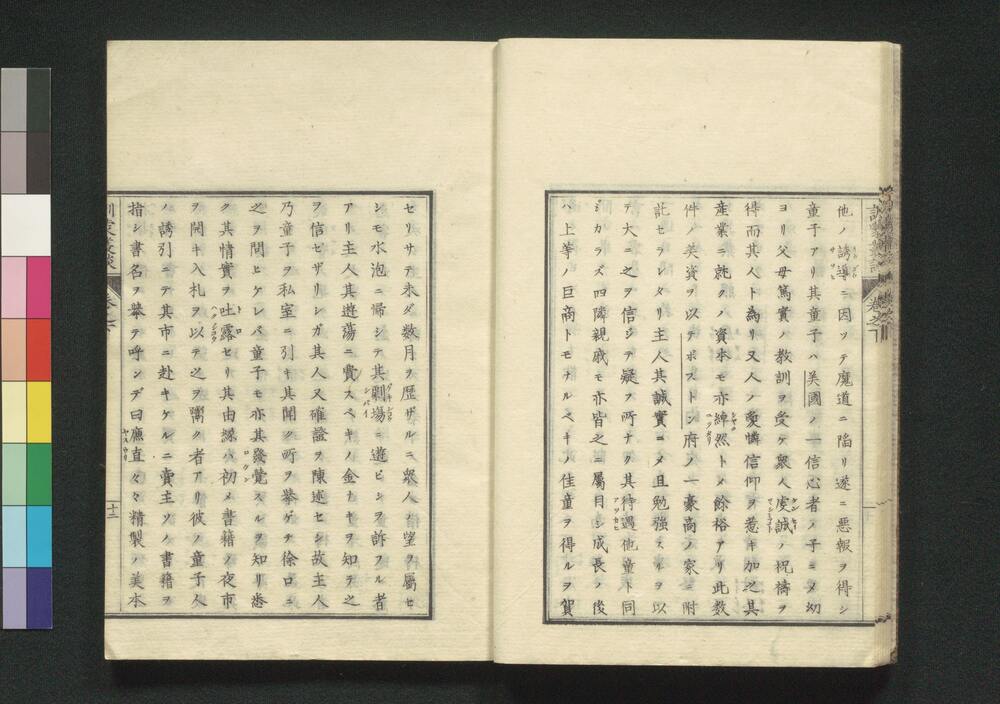 他ノ誘導ニ因ツテ魔道ニ陷リ遂ニ惡報ヲ得シ
童子アリ其童子ハ美國ノ一信心者ノ子ニメ幼
ヨリ父母篤實ノ教訓ヲ受ケ衆人虔誠ノ祝禱ヲ
得而其人ト為リ又人ノ愛憐信仰ヲ惹キ加之其
産業ニ就クノ資本モ亦綽然トメ餘裕アリ此数
件ノ美資ヲ以テボストン府ノ一豪商ノ家ニ附
託セラレタリ主人其誠實ニメ且勉強スルヲ以
テ大ニ之ヲ信ジテ疑フ所ナク其待遇他童ト同
ジカラズ四隣親戚モ亦皆之ニ屬目シ成長ノ後
ハ上等ノ巨商トモナルベキノ佳童ヲ得ルヲ賀
セリサテ未ダ数月ヲ歴ザルニ衆人ノ望ヲ屬セ
シモ水泡ニ帰シテ其劇場ニ遊ビシヲ訴フル者
アリ主人其遊蕩ニ費スベキノ金ナキヲ知テ之
ヲ信セザリシガ其人又確證ヲ陳述セシ故主人
乃童子ヲ私室ニ引キ其聞ク所ヲ擧ゲテ徐ロニ
之ヲ問ヒケレバ童子モ亦其發覺スルヲ知リ悉
ク其情實ヲ吐露セリ其由縁ハ初メ書籍ノ夜市
ヲ開キ入札ヲ以テ之ヲ鬻ク者アリ彼ノ童子人
ノ誘引ニテ其市ニ赴キケルニ賣主ソノ書籍ヲ
指シ書名ヲ擧テ呼ンデ曰廉直々々精製ノ美本
訓蒙叢談
卷之下
十二